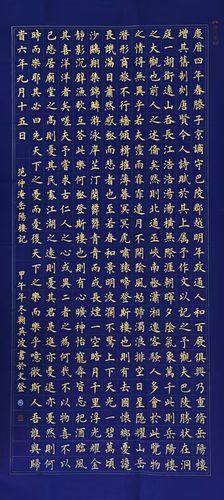 慶曆四年春滕子京謫守巴陵郡越明年政通人和百廢俱興乃重脩岳陽樓
增其舊制刻唐賢今人詩賦於其上屬予作文以記之予觀夫巴陵勝狀在洞
庭一湖銜遠山吞長江浩浩湯湯橫無際涯朝暉夕陰氣象萬千此則岳陽樓
之大觀也前人之述備矣然則北通巫峽南極瀟湘遷客騷人多會於此覽物
之情得無異乎若夫霪雨霏霏連月不開陰風怒號濁浪排空日星隱曜山岳
潛形商旅不行檣傾楫摧薄暮冥冥虎嘯猿啼登斯樓也則有去國懷鄉憂讒
畏譏滿目蕭然感極而悲者也至若春和景明波瀾不驚上下天光一碧萬頃
沙鷗翔集錦鱗游泳岸芷汀蘭郁郁青青而或長煙一空皓月千里浮光耀金
靜影沉璧漁歌互答此樂何極登斯樓也則有心曠神怡寵辱皆忘把酒臨風
其喜洋洋者矣嗟夫予嘗求古仁人之心或異二者之為何哉不以物喜不以
己悲居廟堂之高則憂其民處江湖之遠則憂其君是進亦憂退亦憂然則何
時而樂耶其必曰先天下之憂而憂後天下之樂而樂乎噫微斯人吾誰與歸
時六年九月十五日
范仲淹岳陽樓記 甲午年冬鞠英波書於文登